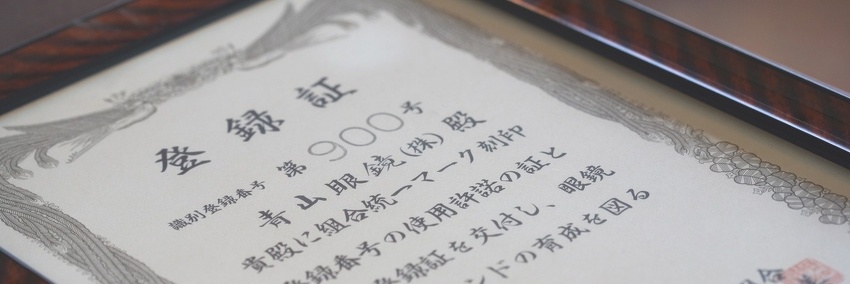 登録証
識別登録番号 第900号
青山眼鏡(株)殿
貴殿に組合統一マーク刻印
登録番号の使用許諾の証と
登録証を交付し、眼鏡
ンドの育成を図る
組合